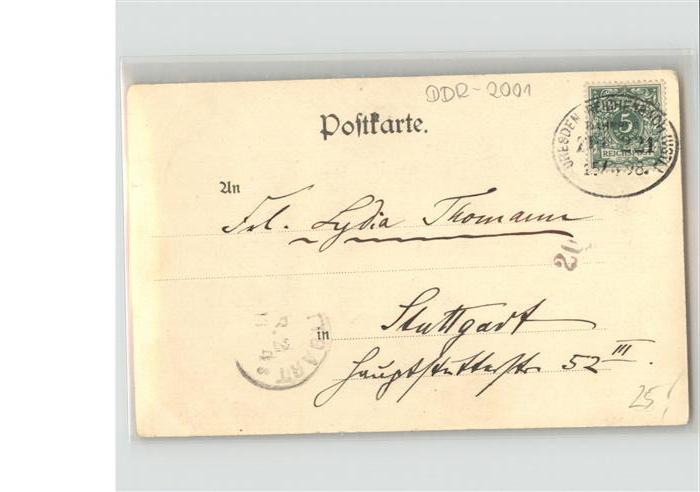 DDR-2001
Postkarte.
DRESDEN REICHENBACH
5
221
An
Frl. Lydia Thomann
20
in Stuttgart
Hauptstätterstr. 52 III.
25!